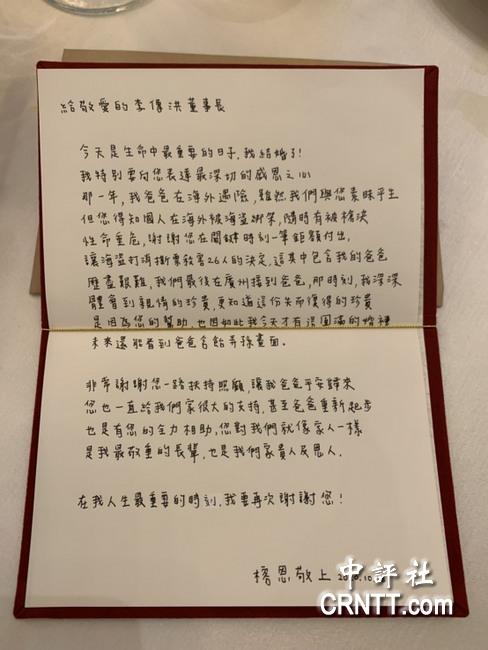 給敬愛的李傳洪董事長
今天是生命中最重要的日子,我結婚了!
我特別要向您表達最深切的感恩之心
那一年,我爸爸在海外遇險,雖然我們與您素昧平生
但您得知國人在海外被海盜綁架,隨時有被槍決
性命重危,謝謝您在關鍵時刻一筆鉅額付出,
讓海盜打消撕票殺害26人的決定,這其中包含我的爸爸
歷盡艱難,我們最後在廣州接到爸爸,那時刻,我深深
體會到親情的珍貴,更知道這份失而復得的珍貴
是因為您的幫助,也因如此我今天才有這圓滿的婚禮
未來還能看到爸爸含飴弄孫畫面。
非常謝謝您一路扶持照顧,讓我爸爸平安歸來
您也一直給我們家很大的支持,甚至爸爸重新起步
也是有您的全力相助,您對我們就像家人一樣
是我最敬重的長輩,也是我們家貴人及恩人。
在我人生最重要的時刻,我要再次謝謝您!
恩敬上
中評社
CRNTT.com